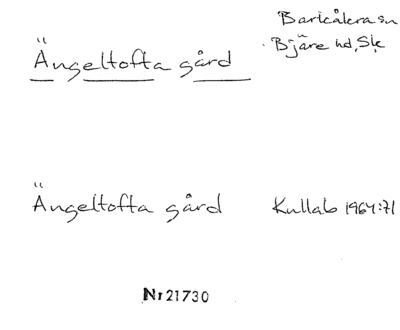 Barkåkra sn
Ängeltofta gård
Bjäre hd, Sk
Ängeltofta gård
Kullab 1964:71
Nr 21730